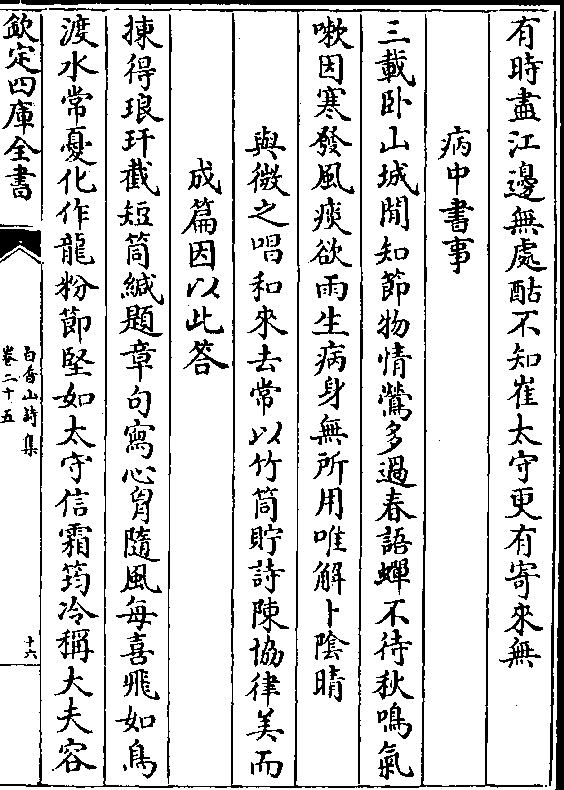 有時盡江邊無處酤不知崔太守更有寄來無
病中書事
三載卧山城閒知節物情鶯多過春語蟬不待秋鳴氣
嗽因寒發風痰欲雨生病身無所用唯解卜隂晴
與微之唱和來去常以竹筒貯詩陳協律美而
成篇因以此答
揀得琅玕截短筒緘題章句寫心胷隨風每喜飛如鳥
渡水常憂化作龍粉節堅如太守信霜筠冷稱大夫容
欽定四庫全書
白香山詩集
卷二十五
十六